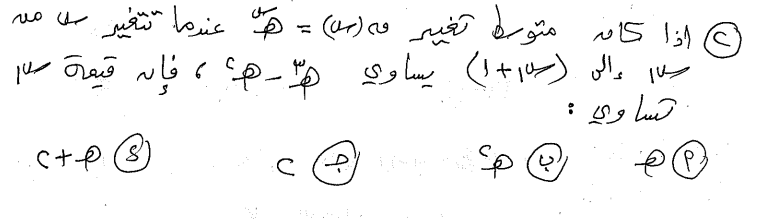 ٢ اذا كان متوسط تغير ق(س) = هـ^س عندما تتغير س من
س١ إلى (س١+١) يساوي هـ^٣ - هـ^٢ ، فإن قيمة س١
تساوي :
أ هـ ب هـ^٢ جـ ٢ د هـ + ٢